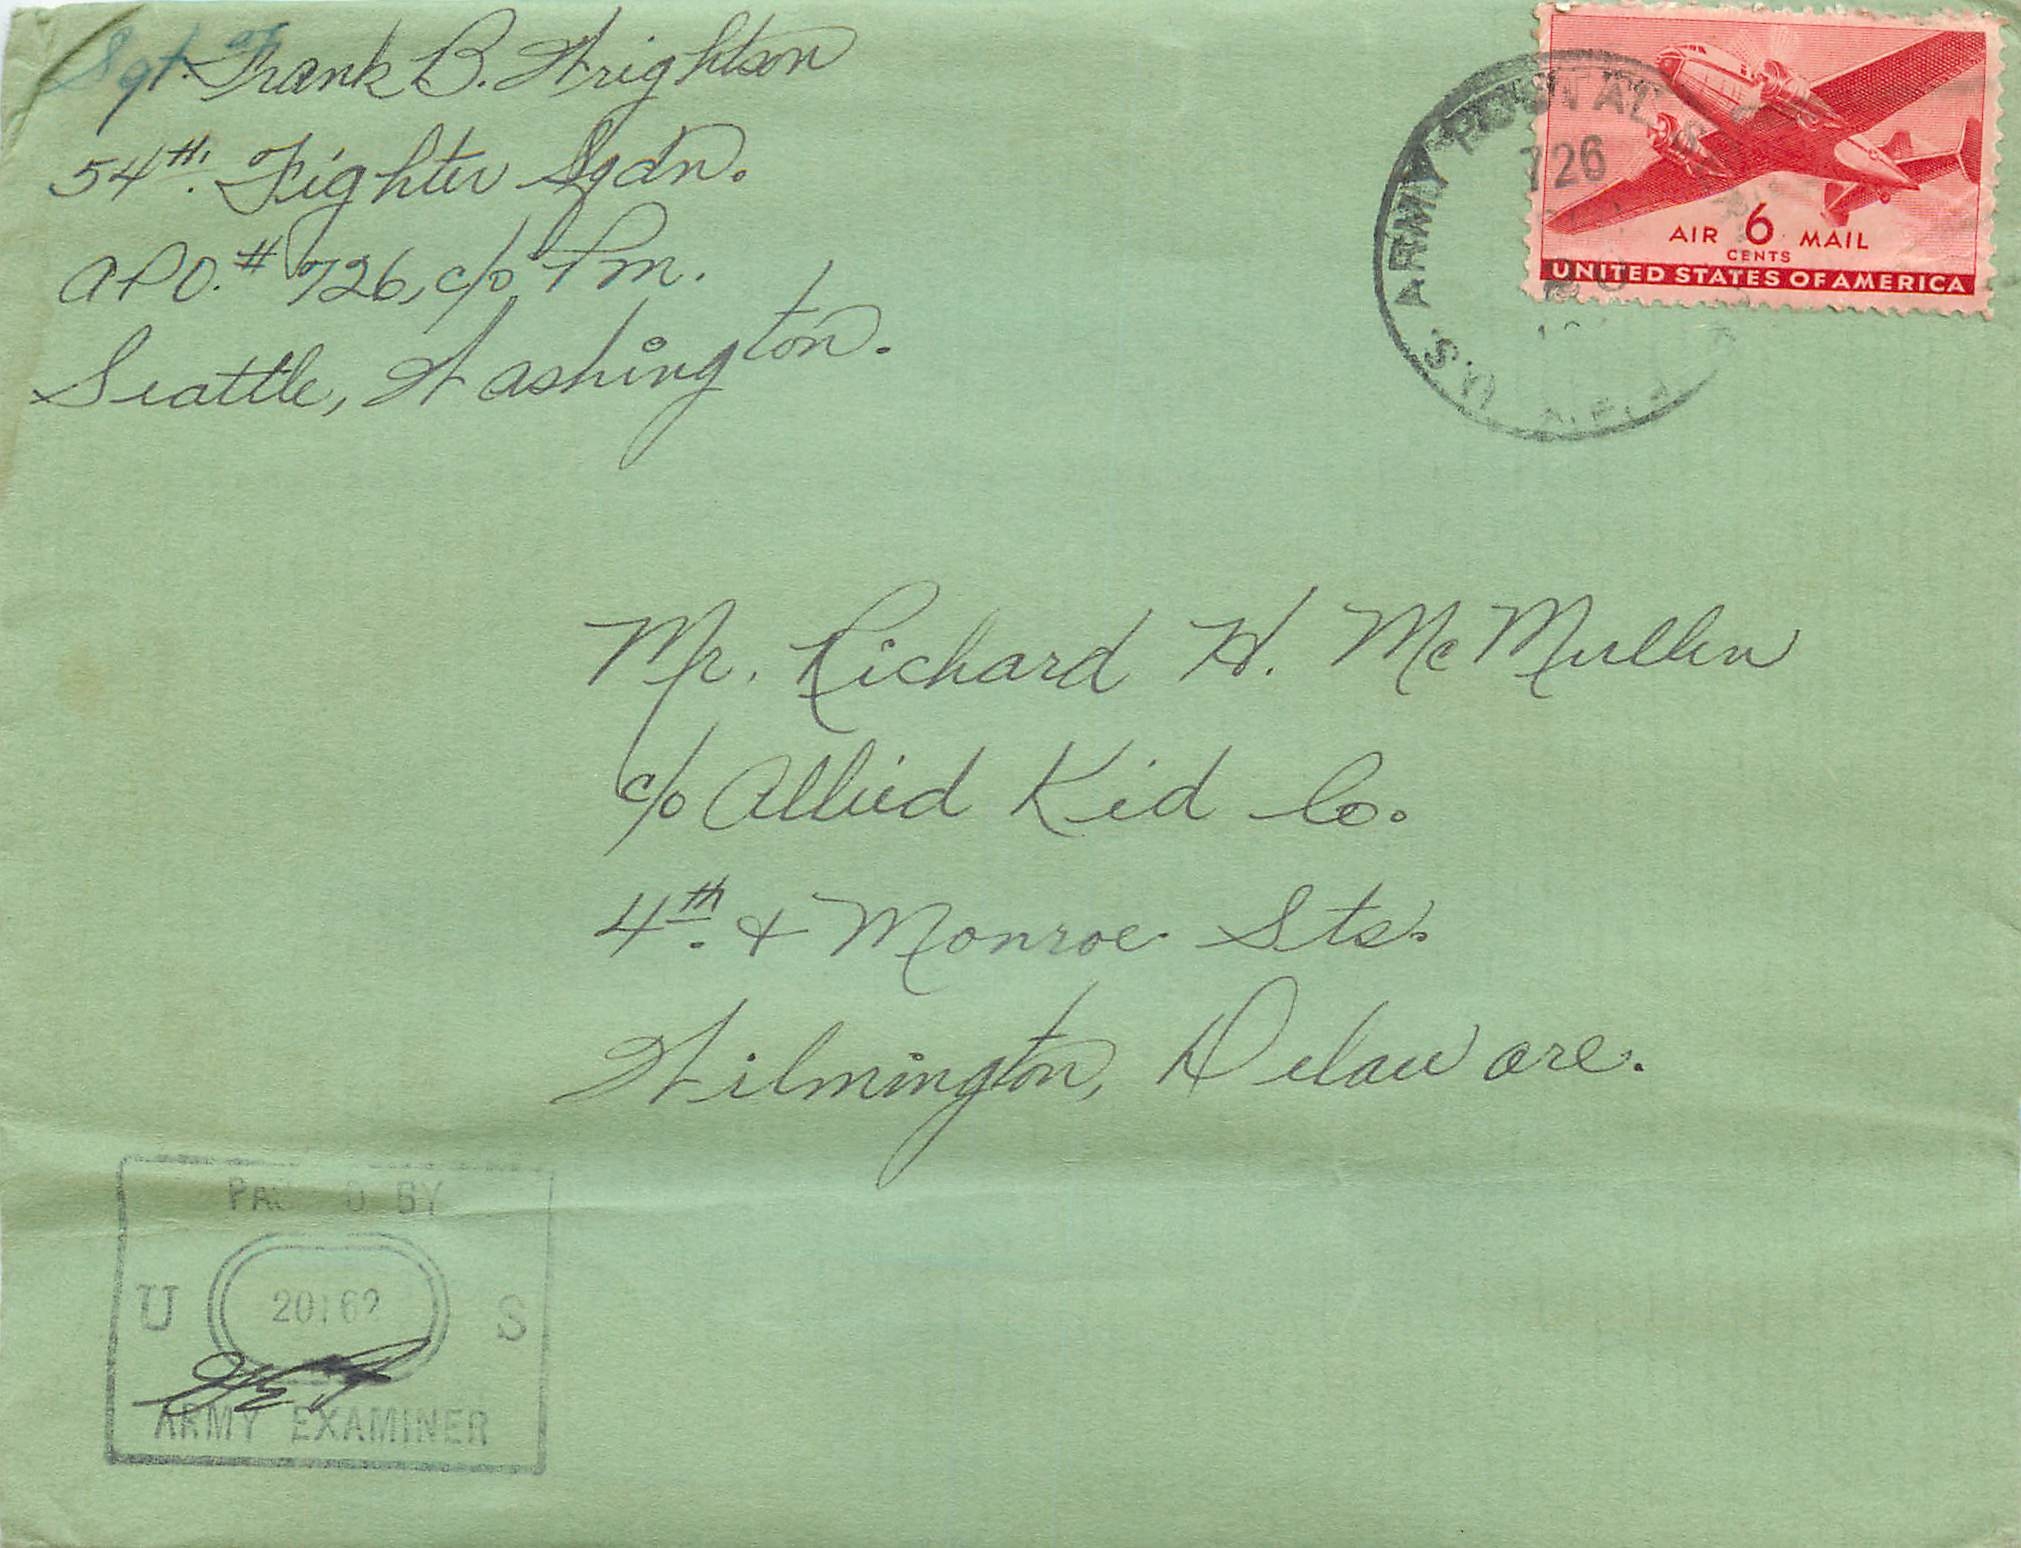 Sgt. Frank B. Wrightson
54th. Fighter Sqdn.
APO. # 726, c/o P.M.
Seattle, Washington.
U.S. ARMY POSTAL
726
AIR 6 MAIL
CENTS
UNITED STATES OF AMERICA
Mr. Richard H. McMullen
c/o Allied Kid Co.
4th. & Monroe Sts.
Wilmington, Delaware.
BY
U S
ARMY EXAMINER